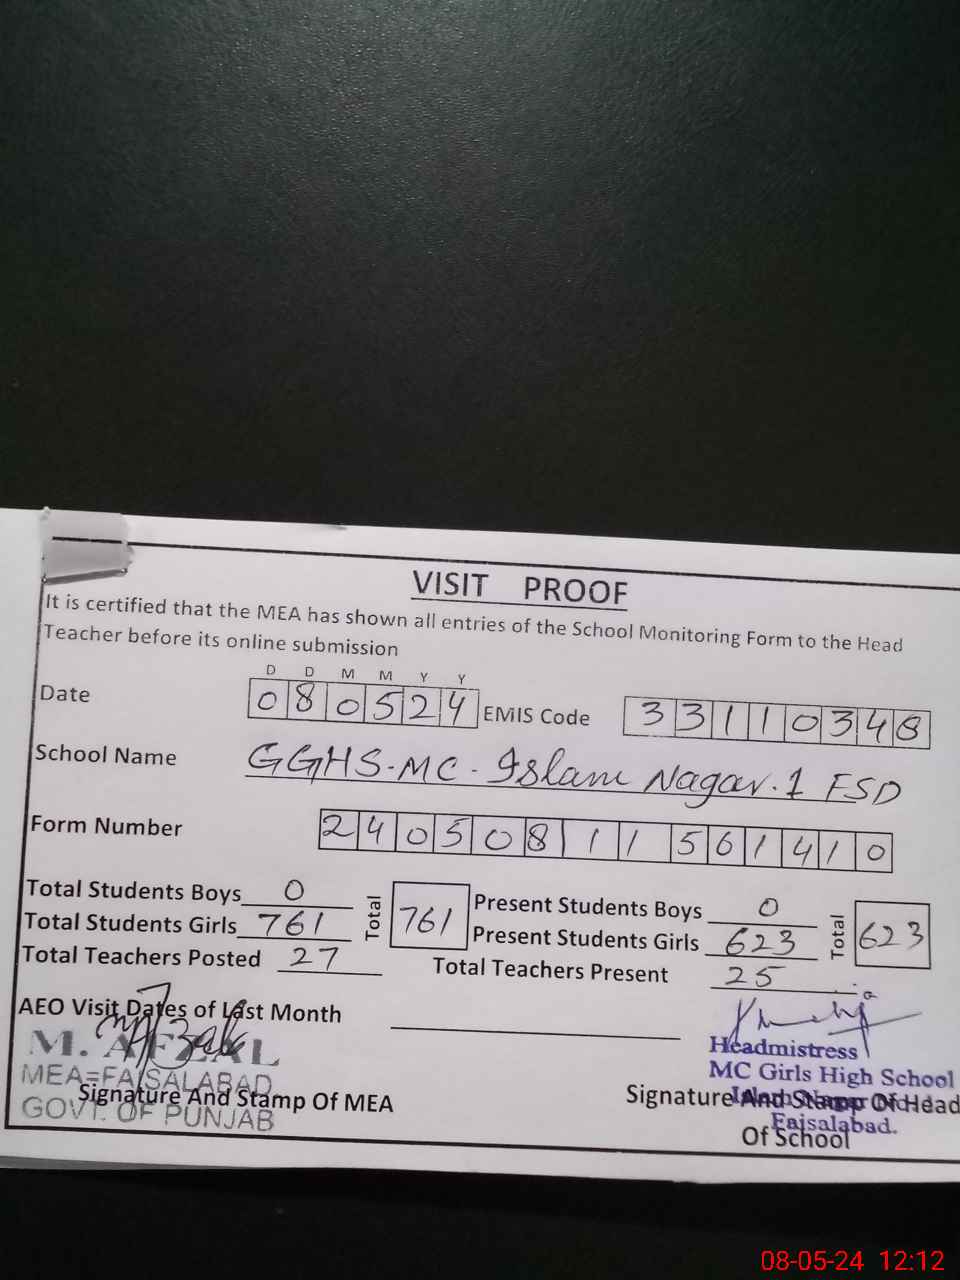 VISIT PROOF
It is certified that the MEA has shown all entries of the School Monitoring Form to the Head
Teacher before its online submission
D D M M Y Y
Date 080524 EMIS Code 33110348
School Name GGHS-MC-Islam Nagar.1 FSD
Form Number 24050811561410
Total Students Boys 0 Total 761 Present Students Boys 0 Total 623
Total Students Girls 761 Present Students Girls 623
Total Teachers Posted 27 Total Teachers Present 25
AEO Visit Dates of Last Month
M. AFZAL
MEA=FAISALABAD
Signature And Stamp Of MEA
GOVT. OF PUNJAB
Headmistress
MC Girls High School
Signature And Stamp Of Head
Islam Nagar
Faisalabad.
Of School
08-05-24 12:12